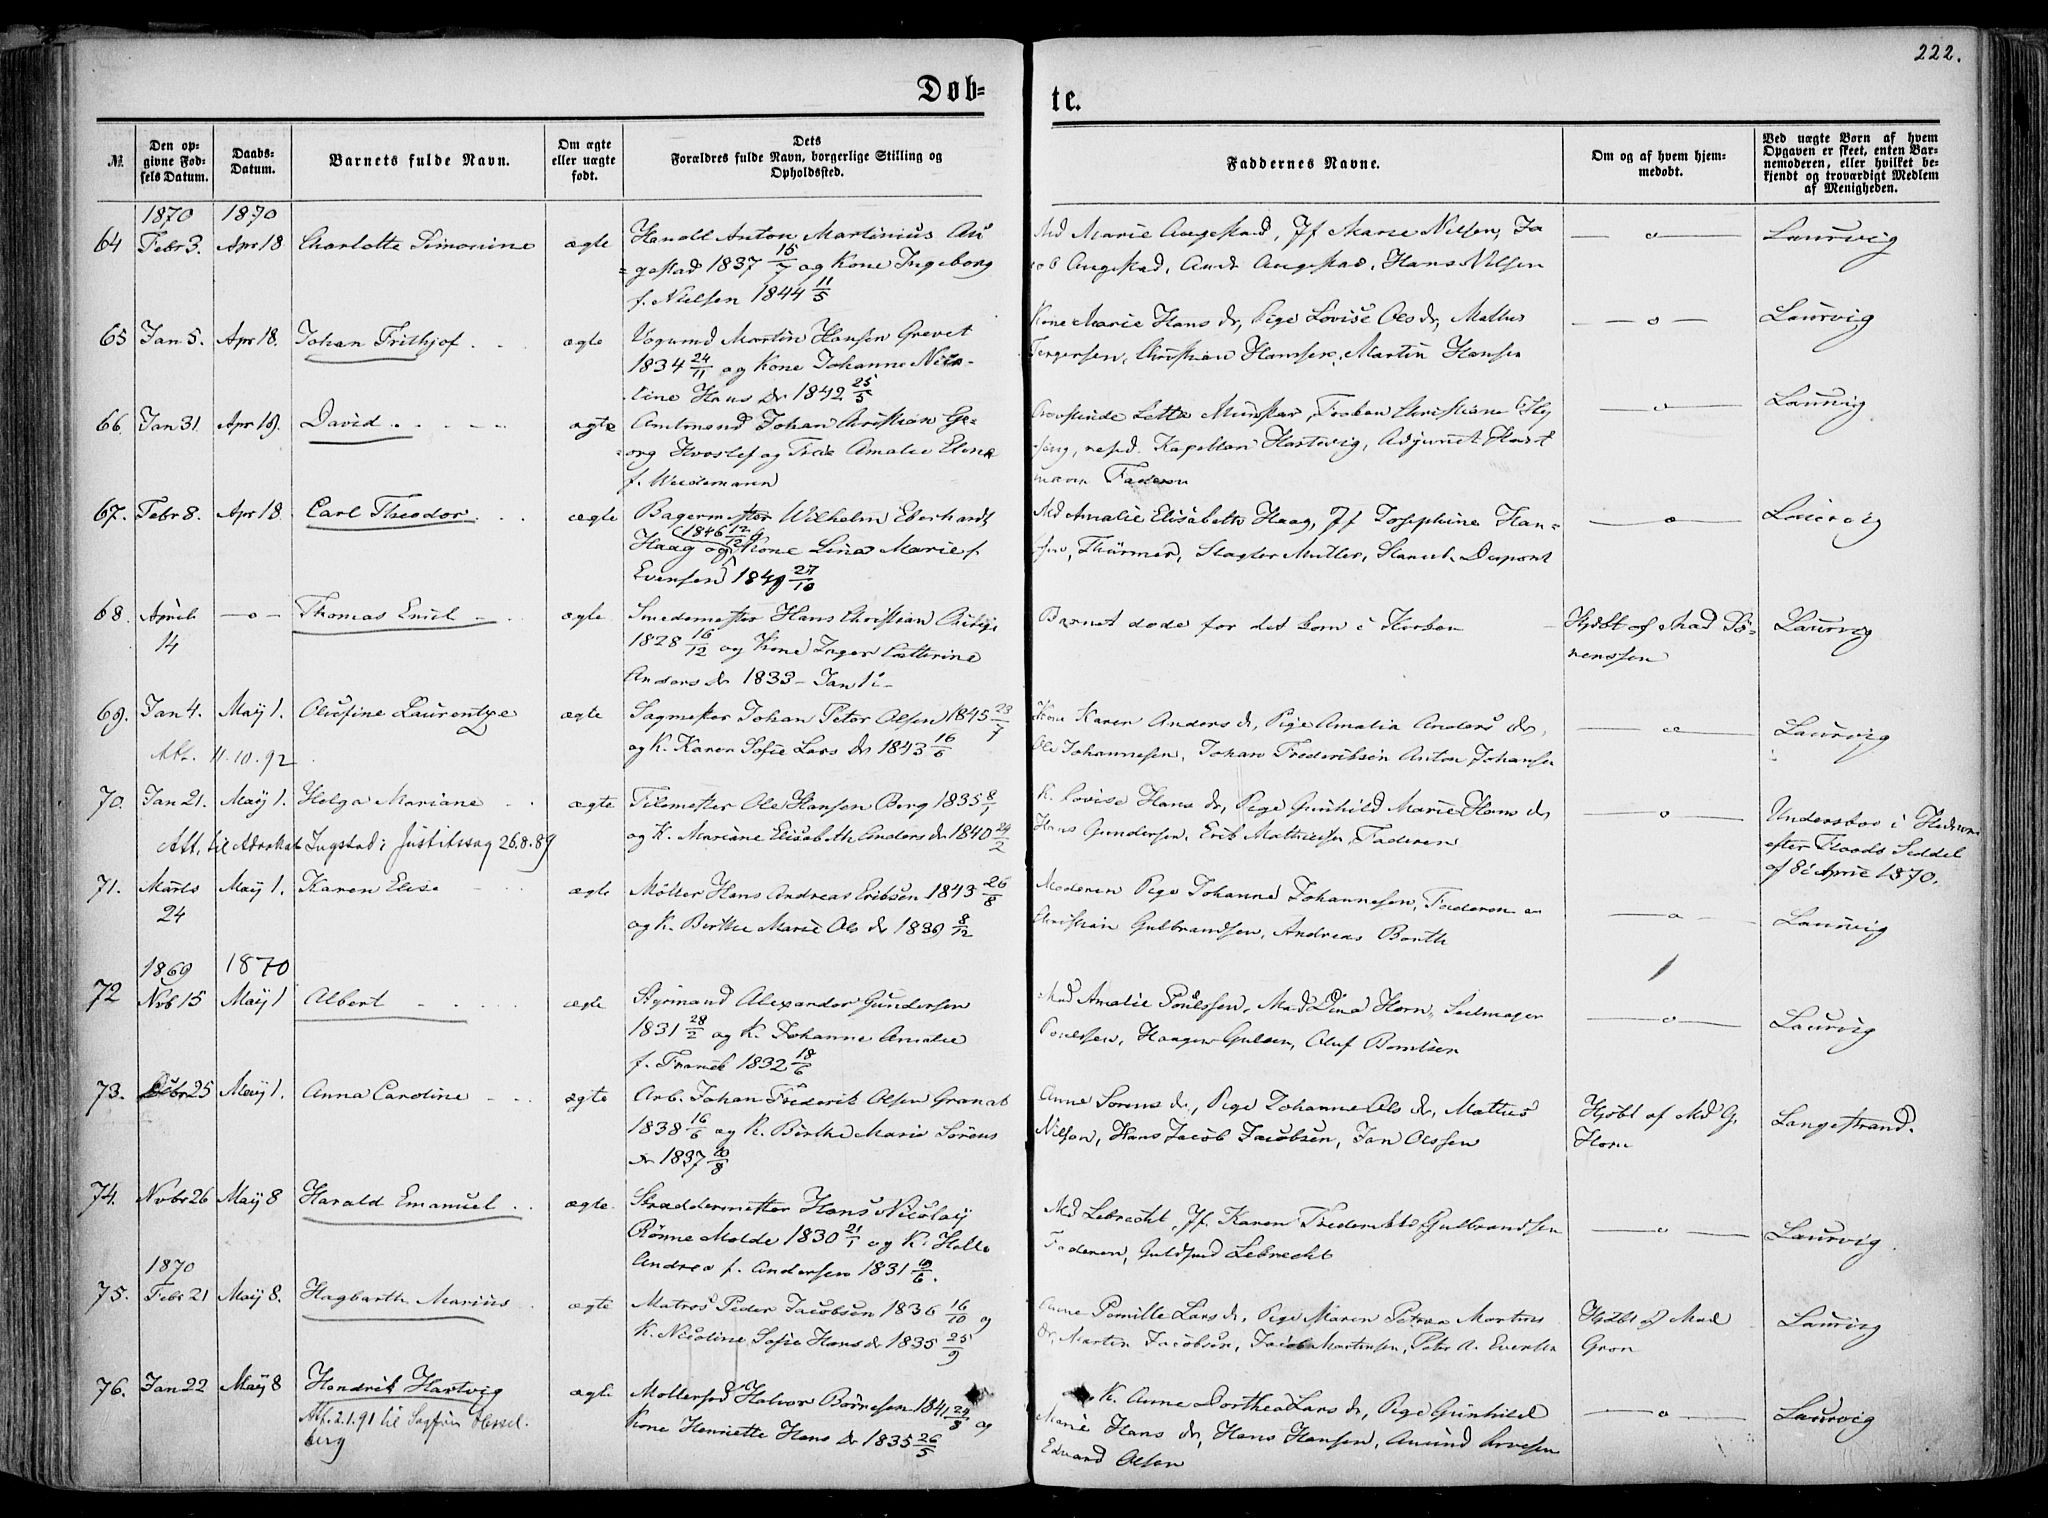 222.
Døb=
te.
№
Den op-
givne Fød-
sels Datum.
Daabs-
Datum.
Barnets fulde Navn.
Om ægte
eller uægte
født.
Dets
Forældres fulde Navn, borgerlige Stilling og
Opholdssted.
Faddernes Navne.
Om og af hvem hjem-
medøbt.
Ved uægte Børn af hvem
Opgaven er skeet, enten Bar-
nemoderen, eller hvilket be-
kjendt og troværdigt Medlem
af Menigheden.
1870 1870
64 Febr 3. Apr 18 Charlotte Simonine ægte
Anton Martinius Au
gestad 1837 15/7 og Kone Ingeborg
f. Nielsen 1844 11/5
Md Marie Augestad, Jf Marie Nilsen, Ja
cob Augestad, Augestad, Hans Nilsen
—o—
Laurvig
65 Jan 5. Apr 18. Johan Frithjof ægte
Martin Hansen Grevet
1834 24/11 og Kone Johanne Nico-
line Hans Dr 1842 25/5
Kone Marie Hans dr, Pige Lovise Ols dr, Mathis
Jørgensen, Christian Hanssen, Martin Hansen
—o—
Laurvig
66. Jan 31. Apr 19. David ægte
Amtmand Johan Christian Ge-
org Hvoslef og Frue Amalie Elene
f. Weidemann
Provstinde Lette Munster, Frøken Christiane
resid. Kapellan Hartvig, Adjunct Hart
mann Faderen
—o—
Laurvig
67. Febr 8. Apr 18. Carl Theodor ægte
Bagermester Wilhelm Eberhardt
Haag (1846 12/12) og Kone Lina Marie f.
Evensen 1849 27/10
Md Amalie Elisabeth Haag, Jf Josephine Han=
sen, Thürmer, Slagter Müller, Dupont
—o—
Laurvig
68. April 14 —o— Thomas Emil ægte
Smedemester Hans Christian
1828 16/12 og Kone Inger Cathrine
Anders dr 1833 - Jan 1 -
Barnet døde før det kom i Kirken
Hjdbt af Mad Sö-
renssen
Laurvig
69. Jan 4. May 1. Olufine Laurentze ægte
Att. 11.10.92
Sagmester Johan Peter Olsen 1845 23/7
og K. Karen Sofie Lars dr 1843 16/6
Kone Karen Anders dr, Pige Amalia Anders dr,
Ole Johannesen, Johan Frederiksen Anton Johansen
—o—
Laurvig
70. Jan 21. May 1. Helga Mariane ægte
Att. til Advokat Ingstad i Justitssag 26.8.89
Filemester Ole Hansen Berg 1835 8/1
og K. Mariane Elisabeth Anders dr 1840 24/2
K. Lovise Hans dr, Pige Gunhild Marie Hans dr
Hans Gundersen, Erik Mathiessen, Faderen
—o—
Undersboe i Hedrum
efter Floods Seddel
af 8de April 1870.
71. Marts 24 May 1. Karen Elise ægte
Møller Hans Andreas Eriksen 1843 26/8
og K. Birthe Marie Ols dr 1839 8/12
Moderen Pige Johanne Johannesen, Faderen
Christian Gulbrandsen, Andreas Borth
—o—
Laurvig
1869 1870
72 Nvb 15 May 1 Albert ægte
Styrmand Alexander Gundersen
1831 28/2 og K. Johanne Amalie
f. Franck 1832 18/6
Mad Amalie Poulssen, Mad Lina Horn, Seilmager
Poulssen, Haagen Gulsen, Oluf Berntsen
—o—
Laurvig
73. 25 May 1. Anna Caroline ægte
Arb. Johan Frederik Olsen Granat
1838 16/6 og K. Birthe Marie Sörens
dr 1837 10/8
Anne Sørens dr, Pige Johanne Ols dr, Mathis
Nilsen, Hans Jacob Jacobsen, Jan Olssen
Hjdbt af Md G.
Horn
Langestrand.
74. Nvbr 26 May 8 Harald Emanuel ægte
Skreddermester Hans Nicolay
Rönne Molde 1830 21/1 og K. Helle
Andrea f. Andersen 1831 10/6.
Md Lebrecht, Jf. Karen Frederikke Gulbrandsen
Faderen, Guldsmd Lebrecht
—o—
Laurvig
1870
75. Febr 21 May 8. Hagbarth Marius ægte
Matros Peder Jacobsen 1836 16/10 og
K. Nicoline Sofie Hans dr 1835 25/9
Anne Pernille Lars dr, Pige Maren Petrea Martins
dr, Martin Jacobsen, Jacob Martinsen, Peter A. Evensen
Hjdbt af Mad
Gron
Laurvig
76. Jan 22 May 8 Hendrik Hartvig ægte
Att. 2.1.91 til Sagfører Hessel-
berg
Møllersvd Halvor Börnesen 1841 24/8 og
Kone Henriette Hans Dr 1835 26/5
K. Anne Dorthea Lars dr, Pige Gunhild
Marie Hans dr, Hans Hansen, Amund Arvesen
Edvard Olsen
—o—
Laurvig